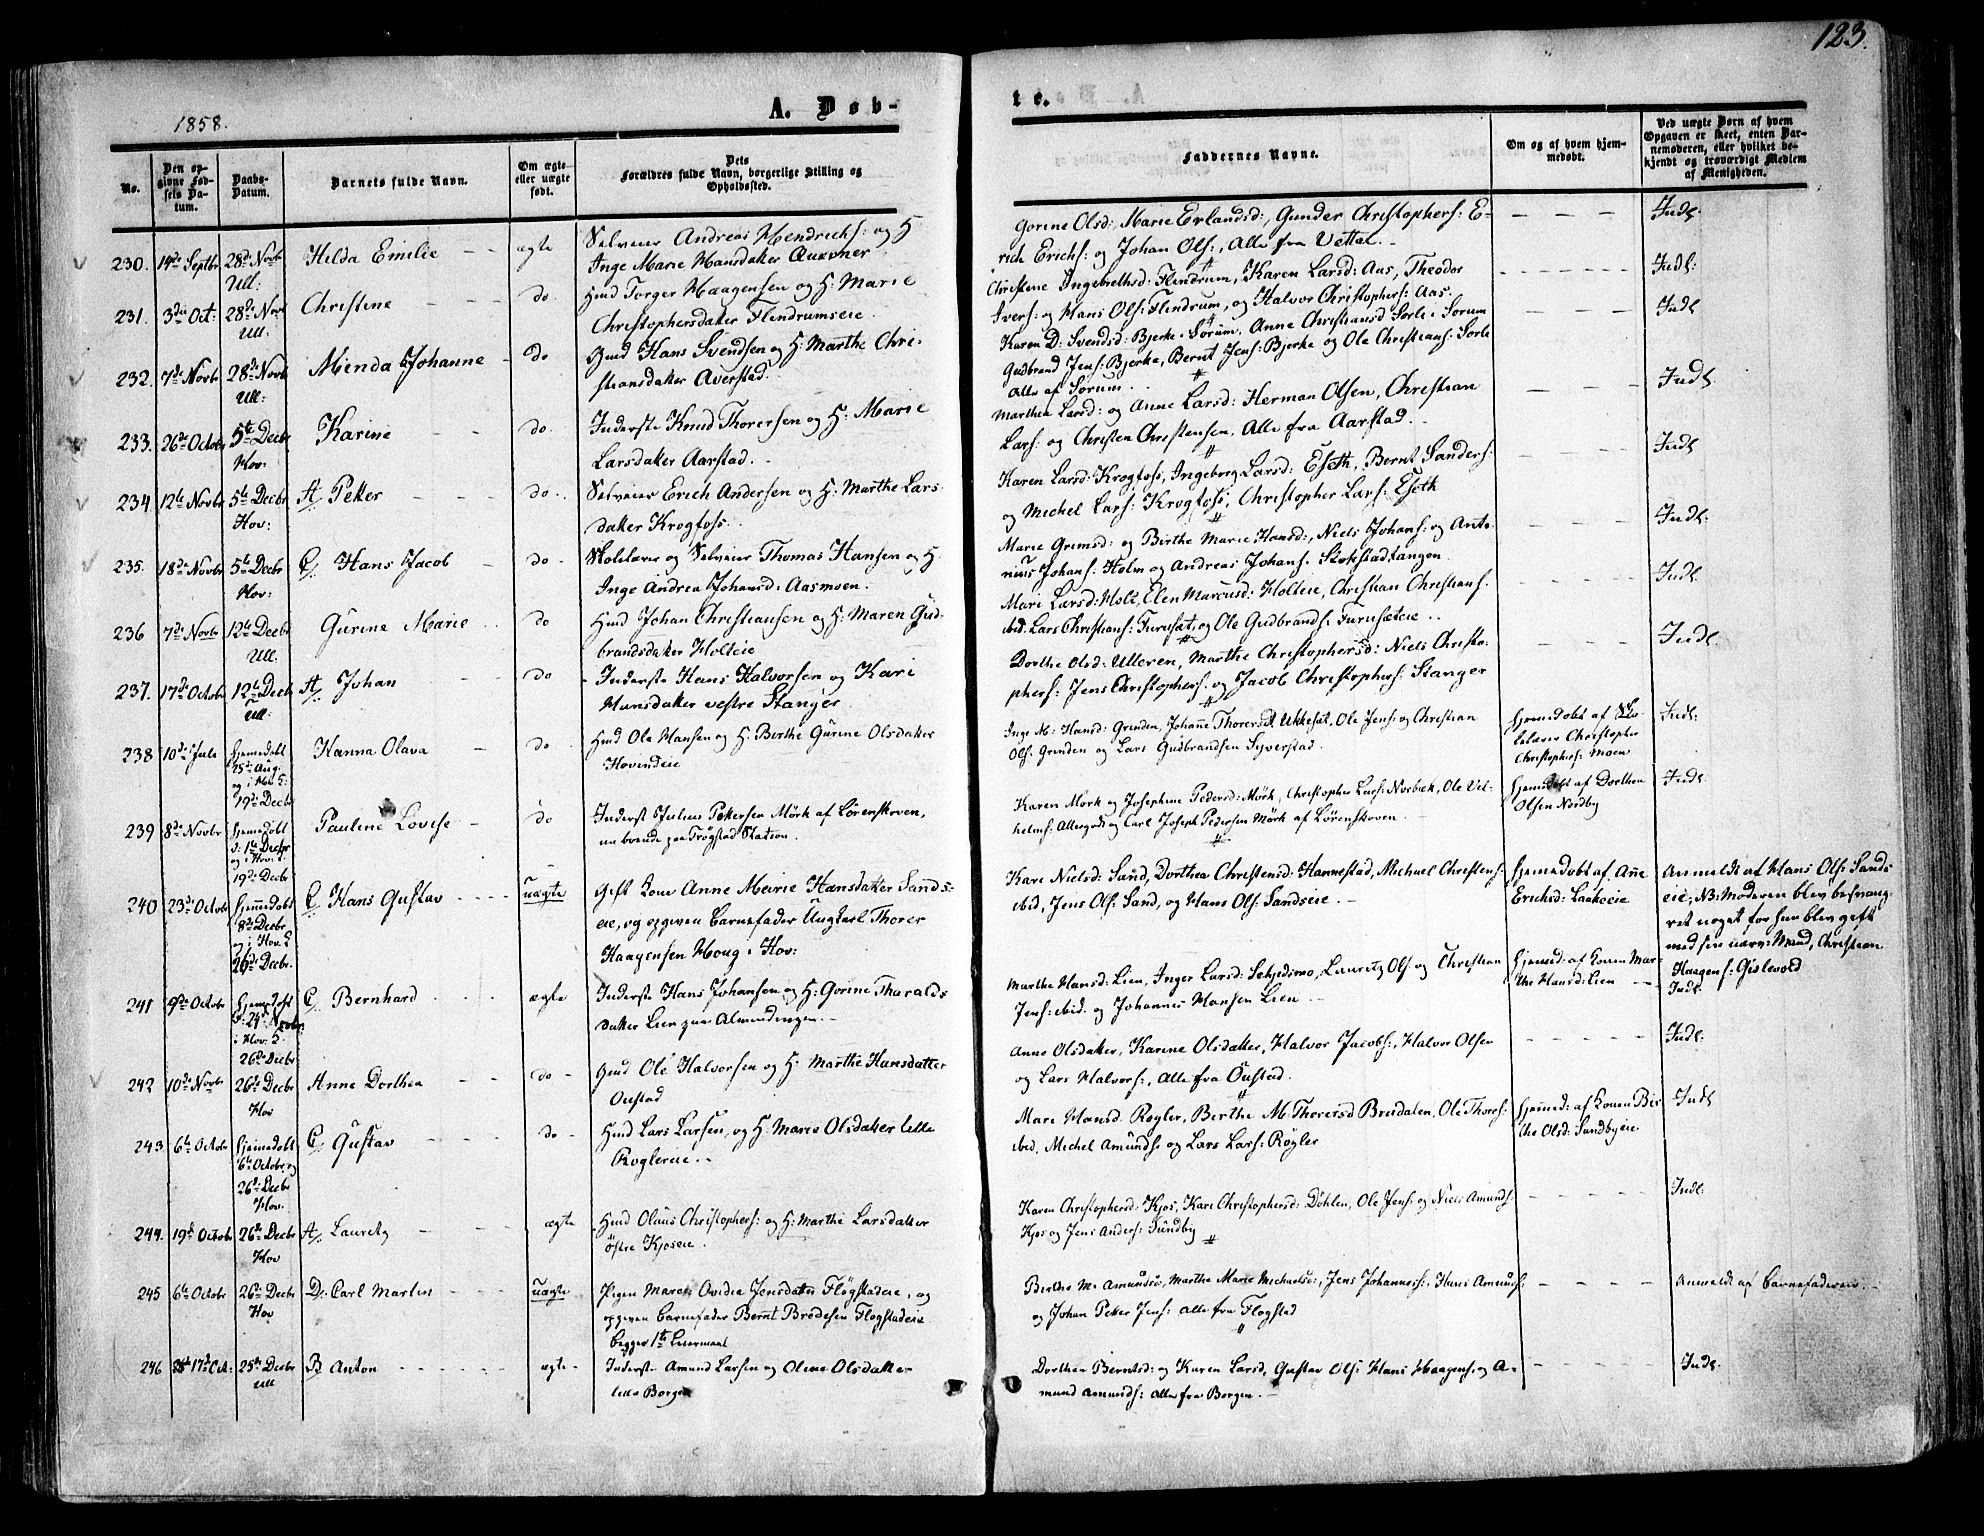 123.
1858.
A. Døb-
te.
No.
Den opgivne Fødsels Datum.
Daabs-Datum.
Barnets fulde Navn.
Om ægte eller uægte født.
Dets Forældres fulde Navn, borgerlige Stilling og Opholdssted.
Faddernes Navne.
Om og af hvem hjemmedøbt.
Ved uægte Børn af hvem Opgaven er skeet, enten Barnemoderen, eller hvilket bekjendt og troværdigt Medlem af Menigheden.
230. 14de Septbr 28de Novbr Ull: Hilda Emilie - - ægte
Selveier Andreas Hendrichs: og H
Inge Marie Hansdatter
Gorine Olsd: Marie Erlandsd:, Gunder Christophers: E-
rich Erichs: og Johan Ols:, Alle fra Vettal. -
Indl
231. 3die Oct: 28de Novbr Ull: Christine - - - do.
Hmd Torger Haagensen og H: Marie
Christophersdatter Flendrumseie.
Christine Ingebrethsd: Flendrum, Karen Larsd: Aas, Theodor
Ivers: og Hans Ols: Flendrum, og Halvor Christophers: Aas.
Indl:
232. 7de Novbr 28de Novb Ull: Minda Johanne - do
Gmd Hans Svendsen og H: Marthe Chri-
stiansdatter Averstad.
Karen D: Svendsd: Bjerke i Sørum, Anne Christiansd Sorli i Sorum
Gudbrand Jens: Bjerke, Bernt Jens: Bjerke og Ole Christians: Sorli
Alle af Sorum.
Indl
233. 26de Octobr 5te Decbr Hov: Karine - - do.
Inderste Knud Thorersen og H: Marie
Larsdatter Aarstad. -
Marthea Larsd: og Anne Larsd: Herman Olsen, Christian
Lars: og Christen Christensen, Alle fra Aarstad. -
Indl
234 12te Novbr 5te Decbr Hov: A/. Petter - - - do.
Selveier Erich Andersen og H: Marthe Lars
datter Krogfoss.
Karen Larsd: Krogfoss, Ingeborg Larsd: Eseth, Bernt Sanders:
og Michel Lars: Krogfoss, Christopher Lars: Eseth
Indl
235. 18de Novbr 5te Decbr Hov: C/. Hans Jacob - do -
Skolelærer og Selveier Thomas Hansen og H
Inge Andrea Johansd: Aasmoen.
Marie Grimsd: og Birthe Marie Hansd:, Niels Johans: og Anto-
nius Johans: Holm og Andreas Johans. Slokstadtangen
Indl:
236 7de Novbr 12te Decbr Ull. Gurine Marie - - do
Hmd Johan Christiansen og H: Maren Gud-
brandsdatter Holteie
Mari Larsd: Holt, Elen Marcusd: Holteie, Christian Christians:
ibid. Lars Christians: Furusæt, og Ole Gudbrands: Furusæteie. -
Indl
237. 17de Octobr 12te Decb Ull. A/. Johan - - do
- Inderste Hans Halvorsen og Kari
Hansdatter vestre Stanger
Dorthe Olsd: Ulleren, Marthe Christophersd: Niels Christo-
phers: Jens Christophers: og Jacob Christophers: Stanger
Indl.
238 10de Jule Hjemdøbt 25de Aug og i Hov. 19de Decbr Hanna Olava - do
Hmd Ole Hansen og H. Berthe Gurine Olsdatter
Hovindeie
Inge M: Hansd: Grinden, Johanne Thorersd Ukkesæt, Ole Jens: og Christian
Ols: Grinden og Lars Gudbrandsen Syverstad.
hjemedøbt af Skolelærer Christopher Christophers: Moen
Indl:
239 8de Novbr hjemdøbt d: 1te Decbr og i Hov: d. 19de Decbr Pauline Lovise - do
Inderst Julius Pettersen Mörk af Lörenskoven,
nu boende paa Trøgstad Station.
Karen Mörk og Josephine Pedersd: Mörk, Christopher Lars: Norbæk, Ole Vil-
helms: Allergodt og Carl Joseph Pedersen Mörk af Lörenskoven. -
Hjemdøbt af Dorthea Olsen Nordby
Indl:
240 23de Octobr hjemedøbt 8de Decbr og i Hov. d 26de Decbr. C/. Hans Gustav - - - uægte
Gift Kone Anne Marie Hansdatter Sands-
eie, og opgiven Barnefader Ungkarl Thorer
Haagensen Houg i Hov:
Kari Nielsd: Sand, Dorthea Christensd: Hannestad, Michael Christens:
ibid, Jens Ols: Sand, og Hans Ols: Sandseie. -
Hjemedøbt af Ane Ericksd: Laakeeie
Anmeldt af Hans Ols: Sands
eie, NB: Moderen blev besvang-
ret noget før hun blev gift
med sin nærv: Mand, Christian
Haagens: Gislevold
241 9de Octobr hjemedøbt d: 24de Novbr. i Hov: d. 26de Decbr C/. Bernhard - - - ægte
Inderste Hans Johansen og H: Gorine Tharalds-
datter Lien paa Almendingen. -
Marthe Hansd: Lien, Inger Larsd: Sckjedsmo, Lauritz Ols og Christian
Jens: ibid. og Johannes Hansen Lien. -
hjemed: af Konen Marthe Hansd: Lien - -
Indl.
242 10de Novbr 26de Decbr Hov Anne Dorthea - - do -
Gmd Ole Halvorsen og H: Marthe Hansdatter
Oustad
Anne Olsdatter, Karine Olsdatter, Halvor Jacobs:, Halvor Olsen
og Lars Halvors:, Alle fra Oustad.
Indl:
243 6te Octobr hjemedøbt 6te October og 26de Decbr Hov. C/. Gustav - - - do -
Hmd Lars Larsen, og H: Marie Olsdatter lille
Røglereie. -
Mari Hansd. Røgler, Berthe M. Thorersd Breidalen, Ole Thors:
ibid, Michel Amunds: og Lars Lars: Røgler
hjemed: af Konen Birthe Olsd: Sundbyeie
Indl
244. 19de Octobr 26de Decbr Hov A/. Lauritz - ægte
Hmd Olaus Christophers: og H: Marthe Larsdatter
östre Kjoseie.
Karen Christophersd: Kjos, Kari Christophersd: Döhlen, Ole Jens: og Niels Amunds:
Kjos og Jens Anders: Sundby
Indl:
245 6te Octobr 26de Decbr Hov D: Carl Martin - - - uægte
Pigen Maren Ovidie Jensdatter Flögstadeie, og
opgiven Barnefader Bernt Bredesen Flogstadeie
begges 1te Leiermaal
Berthe M. Amundsd, Marthe Marie Michaelsd:, Jens Johannes:, Hans Amunds:
og Johan Petter Jens: alle fra Flogstad
Anmeldt af Barnefaderen. -
246 17de Oct: 25de Decbr Ull B Anton - - - - - ægte -
Inderste Amund Larsen og Oline Olsdatter
lille Borgen
Dorthea Berntsd: og Karen Larsd, Gustav Ols: Hans Haagens: og A-
mund Amunds: alle fra Borgen. -
Indl.